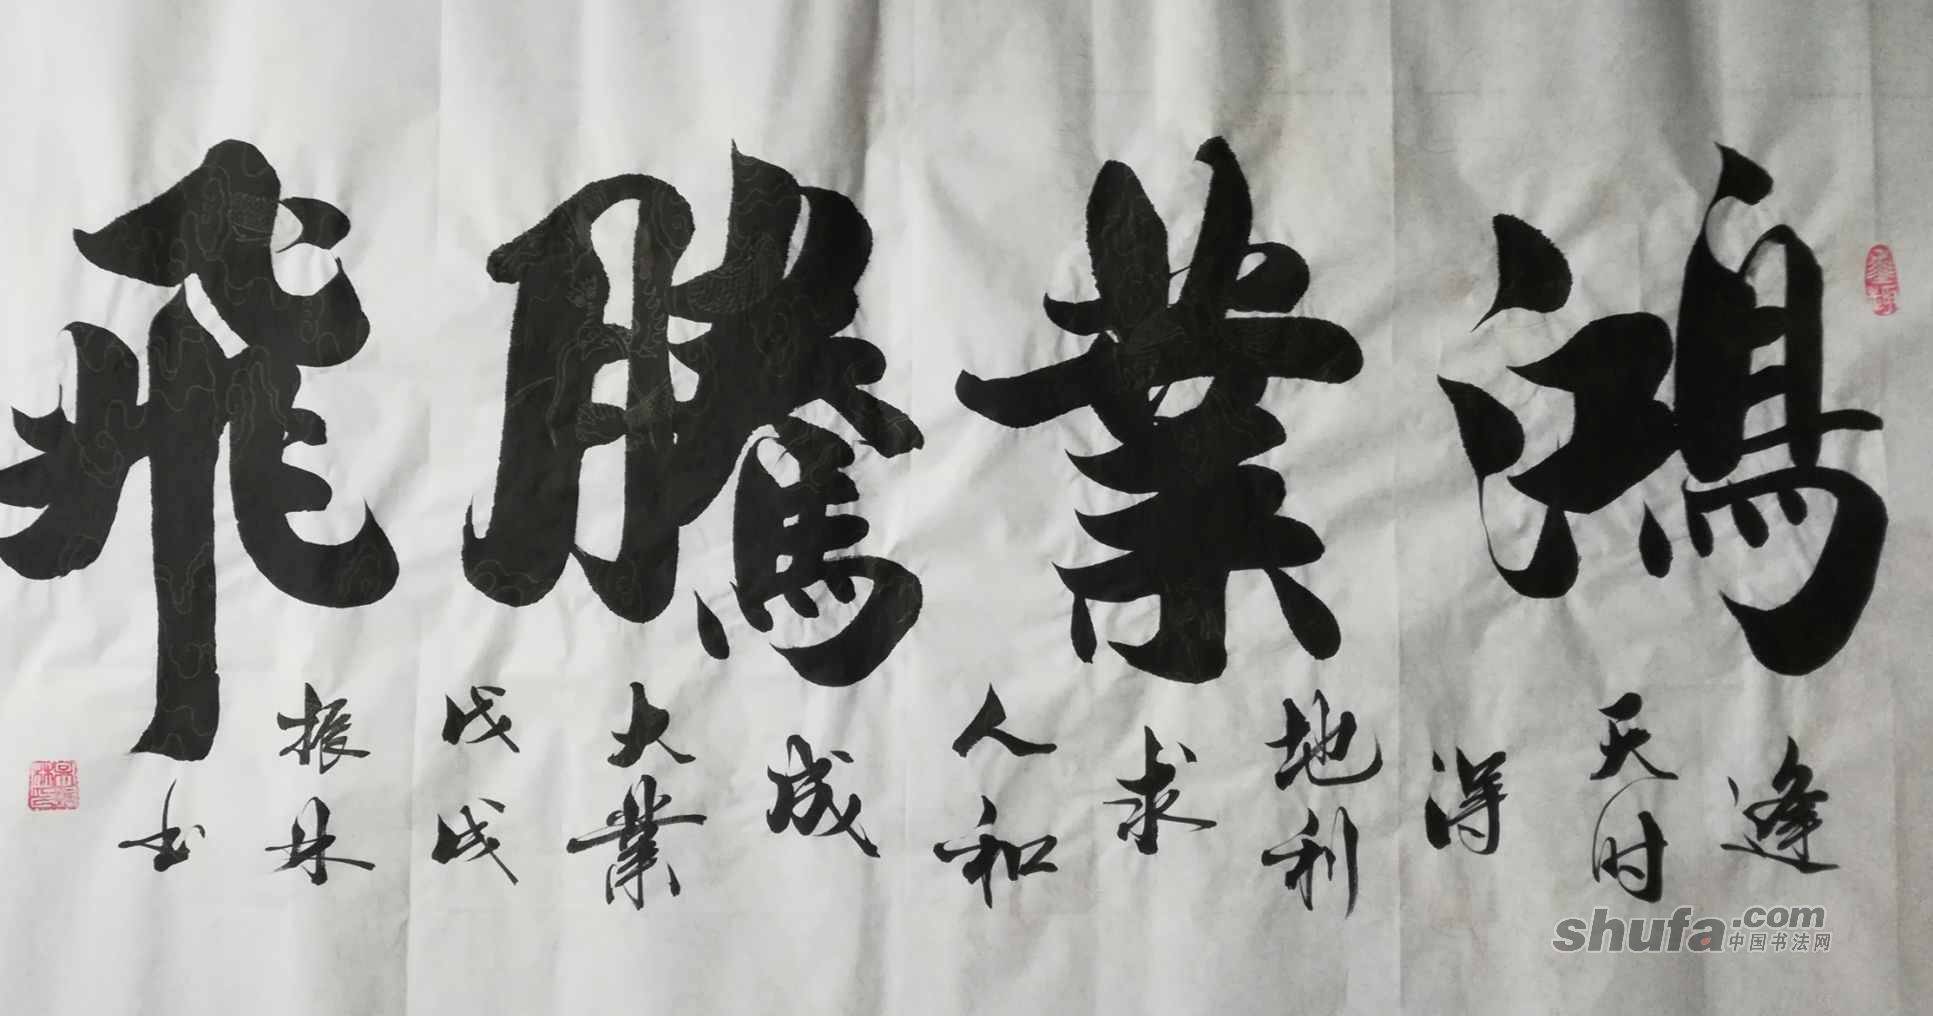 鴻業騰飛
逢天时得地利求人和成大業
戊戌
振林书
shufa.com
中国书法网